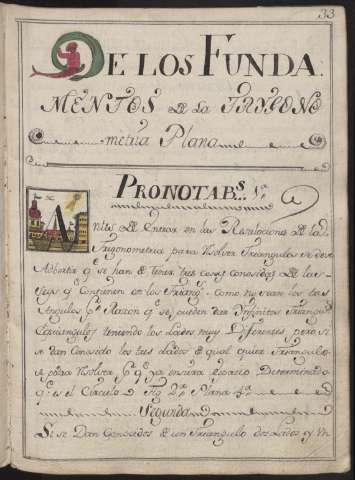 33
DE LOS FUNDA
MENTOS DE LA TRYGONO
metria Plana
PRONOTAB.s 1.º
Antes de Entrar en las Resoluciones de la
Trigonometria para Resolver Triangulos se deve
Advertir q.e se han de tener tres cosas conosidas de las
seys q.e Contienen en los Triang.s como no sean los tres
Angulos p.r Razon q.e se pueden dar Infinitos Triangulos
Equiangulos teniendo los Lados muy Diferentes, pero si
se dan Conosido los tres Lados de qual quier Triangulo
se podra Resolver p.r q.e ya ensierra espacio Determinado
q.e es el Circulo Fig 2.ª Plana 1.ª
Segunda
Si se Dan Conosidos de un Triangulo dos Lados y Un